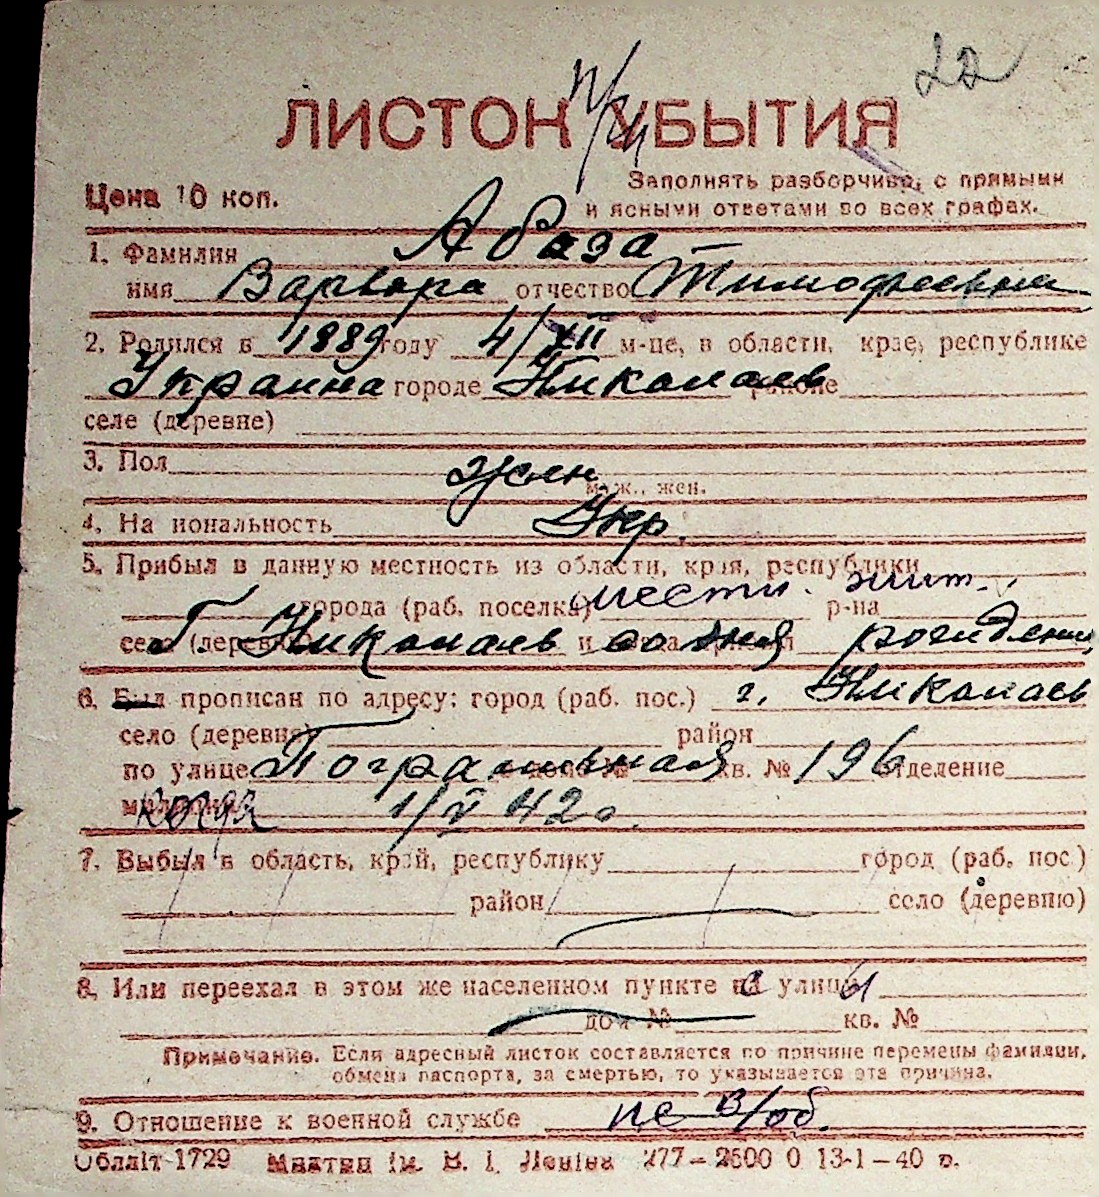 22
ЛИСТОК УБЫТИЯ
Цена 10 коп.
Заполнять разборчиво, с прямыми
и ясными ответами во всех графах.
1. Фамилия Абаза
имя Варвара отчество Тимофеевна
2. Родился в 1889 году 4/XII м-це, в области, крае, республике
Украина городе Николаев районе
селе (деревне)
3. Пол жен
муж., жен.
4. Национальность Укр.
5. Прибыл в данную местность из области, края, республики
города (раб. поселка) местн. жит. р-на
села (деревни) Г. Николаев со дня рождения
6. Был прописан по адресу: город (раб. пос.) г. Николаев
село (деревне) район
по улице Погранычная кв. № 196 отделение
милиции когда 1/V 42 г.
7. Выбыл в область, край, республику город (раб. пос.)
район село (деревню)
8. Или переехал в этом же населенном пункте с улицы
дом № кв. №
Примечание. Если адресный листок составляется по причине перемены фамилии,
обмена паспорта, за смертью, то указывается эта причина.
9. Отношение к военной службе не в/об.
Облліт 1729 Миколаїв ім. В. І. Леніна 277—2600 0 13-1—40 р.